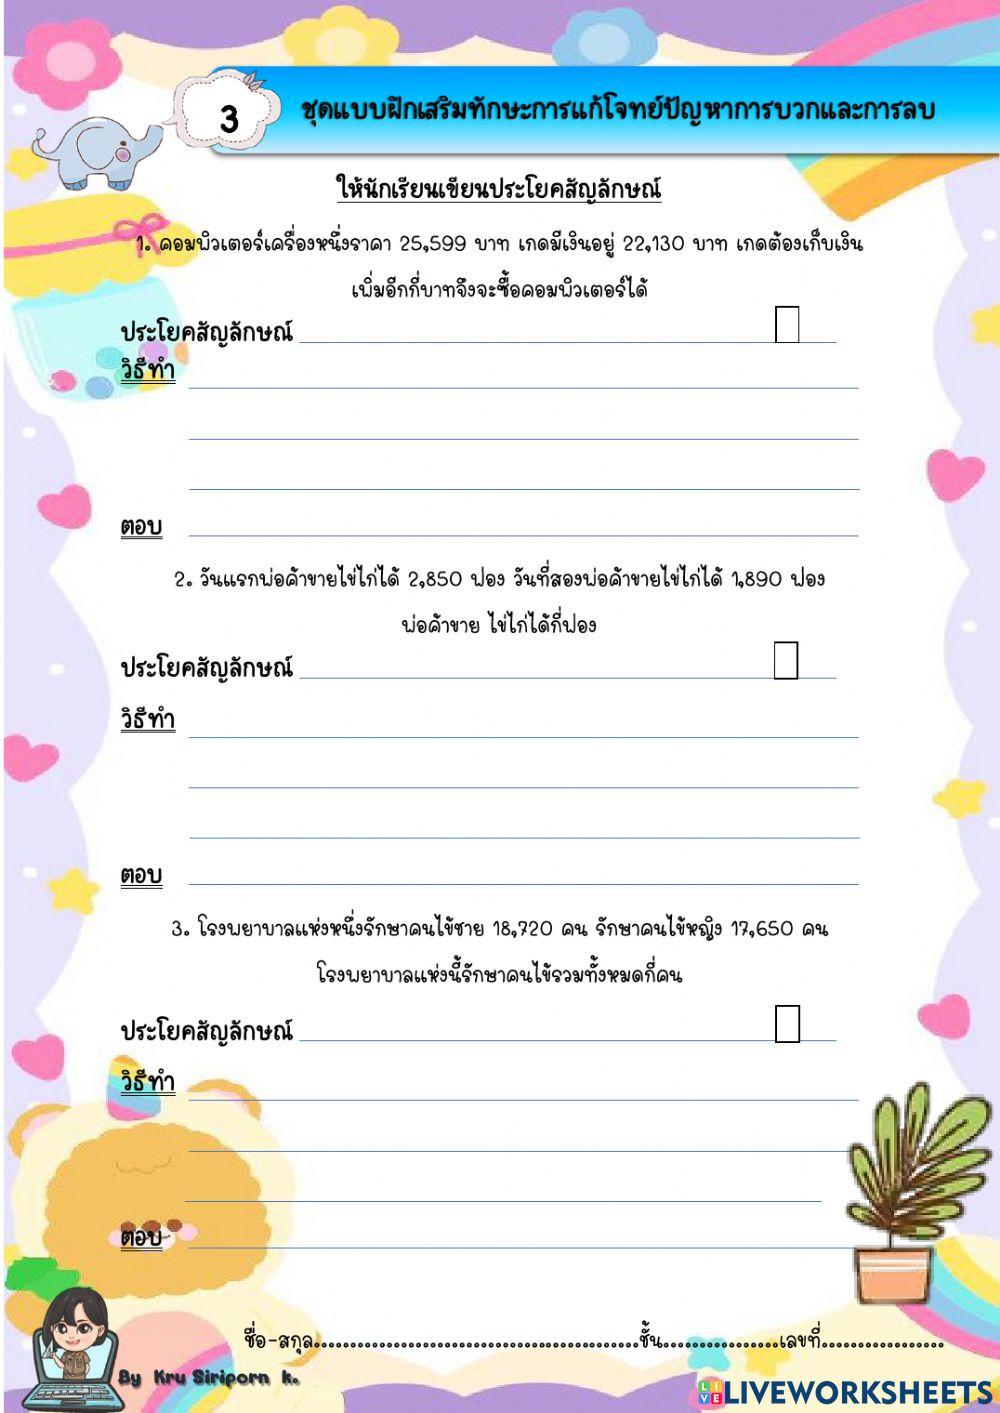 3
ชุดแบบฝึกเสริมทักษะการแก้โจทย์ปัญหาการบวกและการลบ
ให้นักเรียนเขียนประโยคสัญลักษณ์
1. คอมพิวเตอร์เครื่องหนึ่งราคา 25,599 บาท เกดมีเงินอยู่ 22,130 บาท เกดต้องเก็บเงิน
เพิ่มอีกกี่บาทจึงจะซื้อคอมพิวเตอร์ได้
ประโยคสัญลักษณ์
วิธีทำ
ตอบ
2. วันแรกพ่อค้าขายไข่ไก่ได้ 2,850 ฟอง วันที่สองพ่อค้าขายไข่ไก่ได้ 1,890 ฟอง
พ่อค้าขาย ไข่ไก่ได้กี่ฟอง
ประโยคสัญลักษณ์
วิธีทำ
ตอบ
3. โรงพยาบาลแห่งหนึ่งรักษาคนไข้ชาย 18,720 คน รักษาคนไข้หญิง 17,650 คน
โรงพยาบาลแห่งนี้รักษาคนไข้รวมทั้งหมดกี่คน
ประโยคสัญลักษณ์
วิธีทำ
ตอบ
ชื่อ-สกุล.............................................ชั้น................เลขที่.................
By Kru Siriporn k.
LIVE LIVEWORKSHEETS